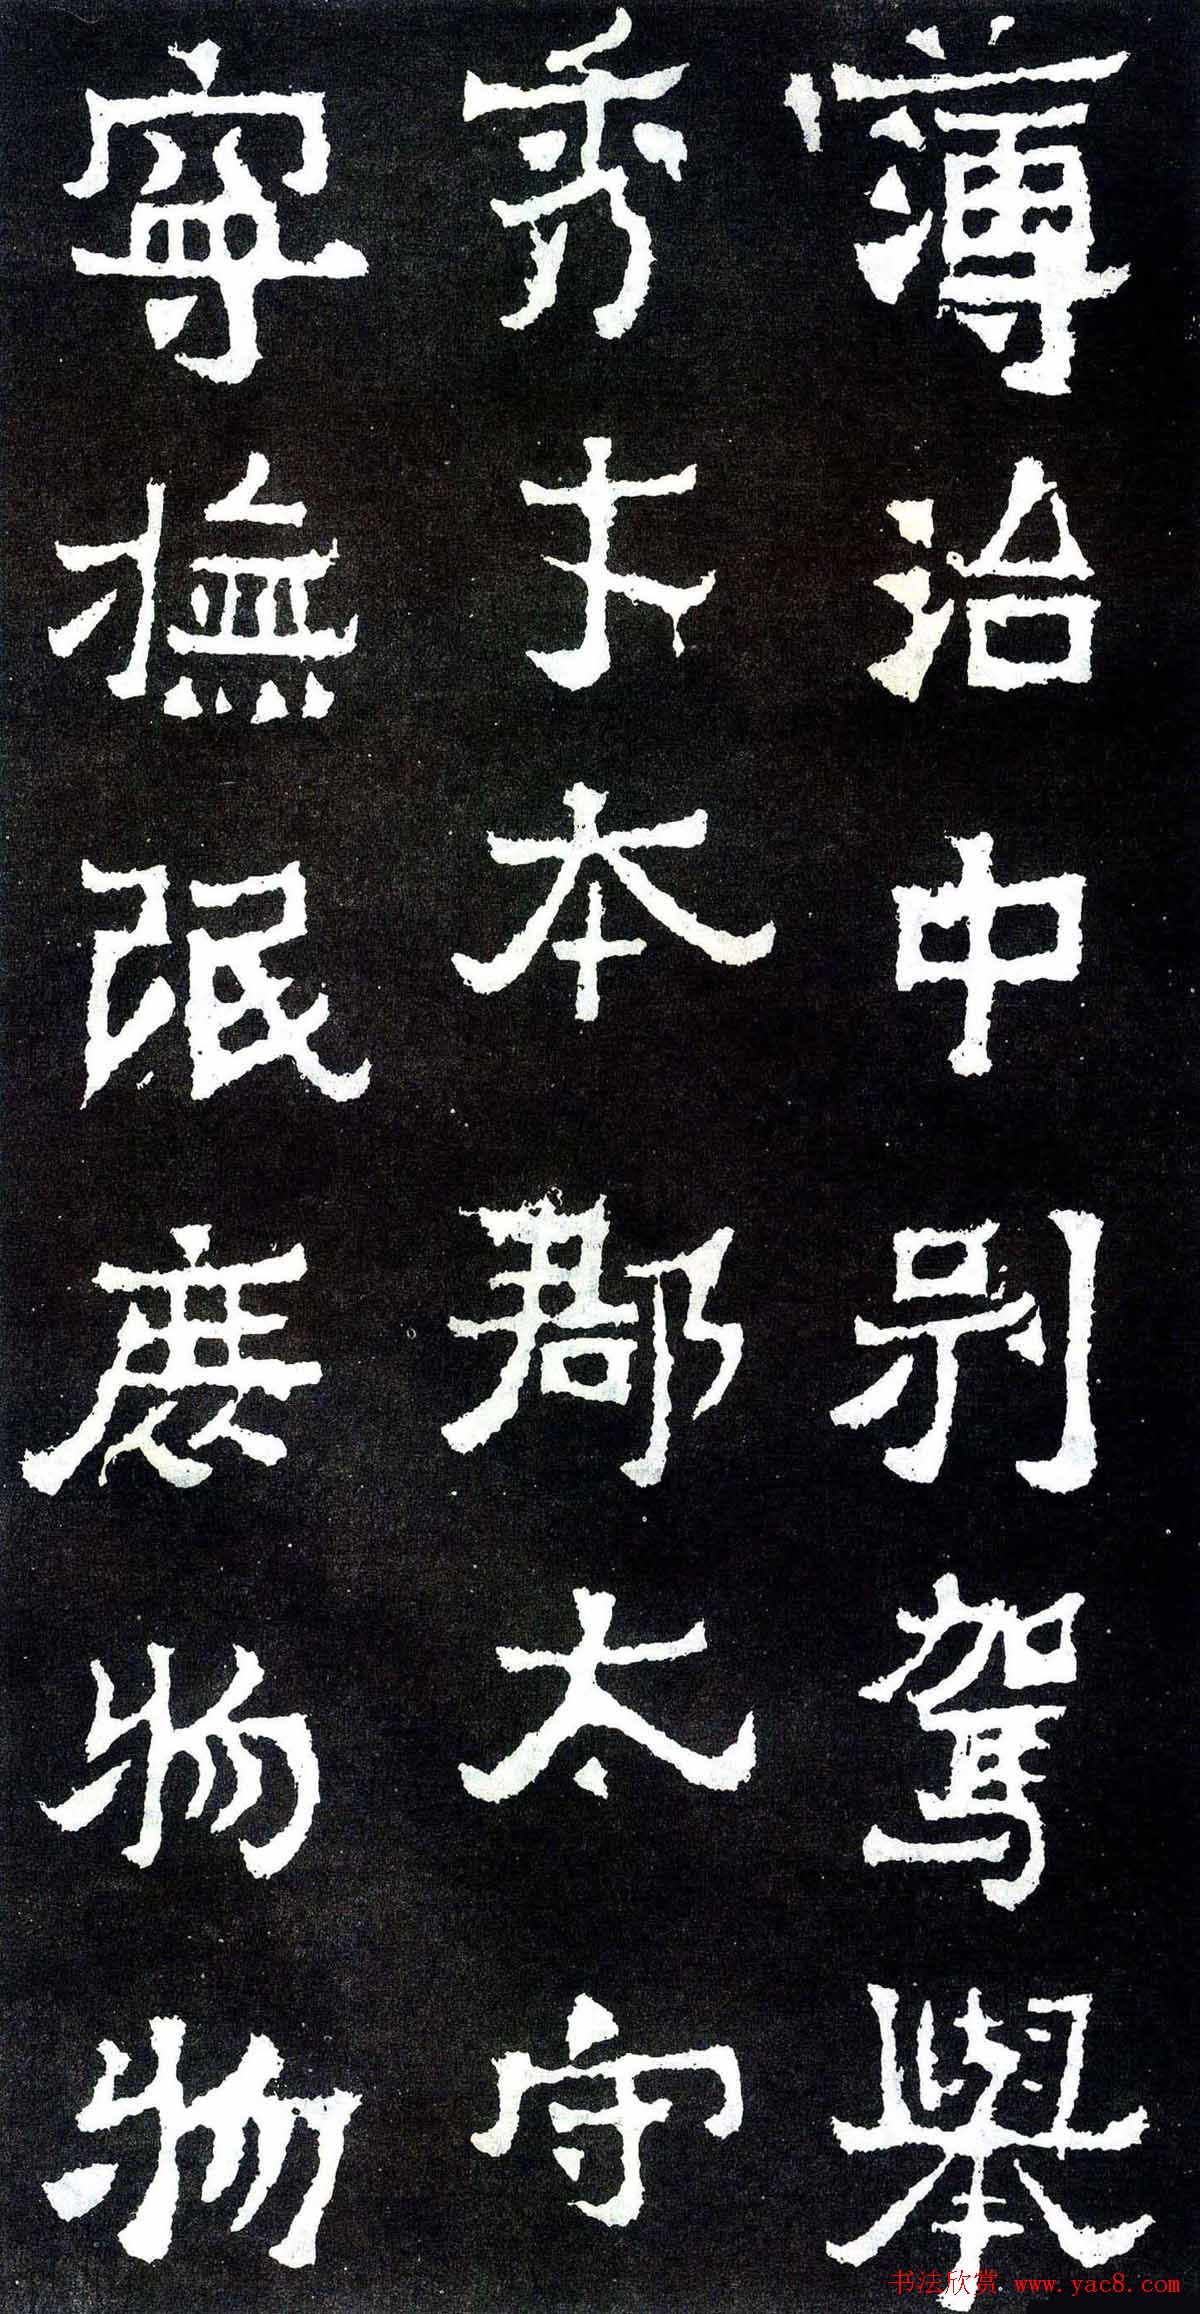 薄治中別駕舉
秀才本郡太守
寧撫氓庶物物
书法欣赏 www.yac8.com